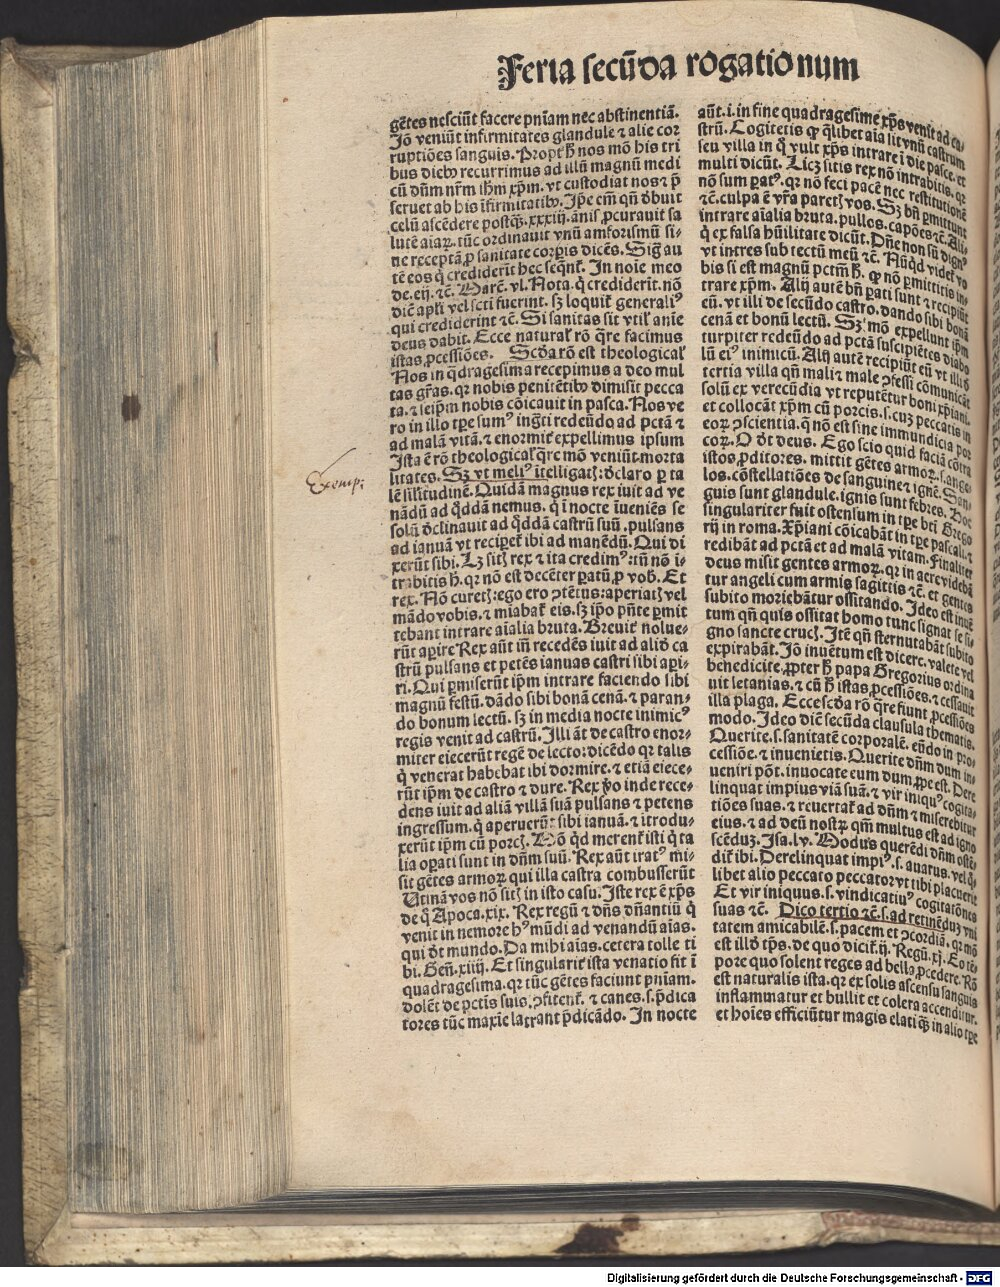 Feria secūda rogationum
gētes nesciūt facere pniam nec abstinentiā.
Jō veniūt infirmitates glandule ⁊ alie cor
ruptiōes sanguis. Propt̄ h̄ nos mō his tri
bus diebꝰ recurrimus ad illū magnū medi
cū dn̄m nr̄m ihm̄ xp̄m. vt custodiat nos ⁊ p̄
seruet ab his īfirmitatibꝰ. Ip̄e em̄ qn̄ debuit
celū ascēdere postqꝫ .xxxiij. ānis ꝓcurauit sa
lutē aiaꝝ. tūc ordinauit vnū amforismū si-
ne receptā ꝓ sanitate corꝑis dicēs. Siḡ au
tē eos q̄ crediderīt hec seqn̄t. In noīe meo
de. eij. ⁊c. Marc̄. vl. Nota. q̄ crediderīt. nō
dic̄ apl̄i vel scti fuerint. sꝫ loquit̄ generaliꝰ
qui crediderint ⁊c. Si sanitas sit vtil̄ anīe
deus dabit. Ecce natural̄ rō q̄re facimus
istas ꝓcessiōes. Scd̄a rō est theological̄
Nos in q̄dragesima recepimus a deo mul
tas gr̄as. qꝛ nobis penitētibꝰ dimisit pecca
ta. ⁊ seip̄m nobis cōicauit in pasca. Nos ve
ro in illo tꝑe sumꝰ ingr̄ti redeūdo ad pctā ⁊
ad malā vitā. ⁊ enormit̄ expellimus ipsum
Ista ē rō theological̄ q̄re mō veniūt morta
litates. Sꝫ vt meliꝰ ītelligatꝭ: declaro ꝑ ta
Exemp̄:
lē sil̄itudinē. Quidā magnus rex iuit ad ve
nādū ad qd̄dā nemus. q̄ ī nocte īueniēs se
solū declinauit ad qd̄dā castrū suū. pulsans
ad ianuā vt reciꝑet ibi ad manēdū. Qui di
xerūt sibi. Lꝫ sitꝭ rex ⁊ ita credimꝰ: tn̄ nō ī-
trabitis h̄. qꝛ nō est decēter ꝑatū ꝓ vob̄. Et
rex. Nō curetꝭ: ego ero ꝯtētus: aperiatꝭ vel
mādo vobis. ⁊ miabat̄ eis. sꝫ ip̄o pn̄te ꝑmit
tebant intrare aīalia bruta. Breuit̄ nolue-
rūt aꝑire Rex aūt īn recedēs iuit ad aliō ca
strū pulsans et petēs ianuas castri sibi aꝑi-
ri. Qui ꝑmiserūt ip̄m intrare faciendo sibi
magnū festū. dādo sibi bonā cenā. ⁊ paran-
do bonum lectū. sꝫ in media nocte inimicꝰ
regis venit ad castrū. Illi āt de castro enor-
miter eiecerūt regē de lecto: dicēdo qꝛ talis
q̄ venerat habebat ibi dormire. ⁊ etiā eiece-
rūt ip̄m de castro ⁊ dure. Rex v̄o inde rece-
dens iuit ad aliā villā suā pulsans ⁊ petens
ingressum. q̄ aperuerūt sibi ianuā. ⁊ itrodu-
xerūt ip̄m cū porcꝭ. Mō qd̄ merent̄ isti q̄ ta
lia oꝑati sunt in dn̄m suū. Rex aūt iratꝰ mi-
sit gētes armoꝝ qui illa castra combusserūt
Utinā vos nō sitꝭ in isto casu. Iste rex ē xp̄s
de q̄ Apoca. xix. Rex regū ⁊ dn̄s dn̄antiū q̄
venit in nemore hꝰ mūdi ad venandū aīas.
qui d̄t mundo. Da mihi aīas. cetera tolle ti
bi. Gen̄. xiiij. Et singularit̄ ista venatio fit ī
quadragesima. qꝛ tūc gētes faciunt pniam.
dolēt de pctīs suis. ꝯfitent̄. ⁊ canes. s. p̄dica
tores tūc maxīe latrant p̄dicādo. In nocte
aūt. i. in fine quadragesime xp̄s venit ad ca-
strū. Cogitetis ꝙ q̄libet aīa sit vnū castrum
seu villa in q̄ vult xp̄s intrare ī die pasce. et
multi dicūt. Licꝫ sitis rex nō intrabitis. qꝛ
nō sum ꝑatꝰ. qꝛ nō feci pacē nec restitutionē
⁊c. culpa ē vr̄a paretꝭ vos. Sꝫ bn̄ ꝑmittunt
intrare aīalia bruta. pullos. capōes ⁊c. Ali-
q̄ ex falsa hūilitate dicūt. Dn̄e non sū dignꝰ
vt intres sub tectū meū ⁊c. Nūqd̄ videt̄ vo
bis si est magnū pctm̄ h̄. ꝙ nō ꝑmittitis in-
trare xp̄m. Alij autē bn̄ ꝑati sunt ⁊ recipiūt
eū. vt illi de secūdo castro. dando sibi bonā
cenā et bonū lectū. Sꝫ mō expellunt ip̄m
turpiter redeūdo ad pctā suscipiētes diabo
lū eiꝰ inimicū. Alij autē recipiūt eū vt illi d̄
tertia villa qn̄ mali ⁊ male ꝯfessi cōmunicāt
solū ex verecūdia vt reputētur boni xp̄iani.
et collocāt xp̄m cū porcis. s. cuꝫ peccatis in
eoꝝ ꝯscientia. q̄ nō est sine immundicia por
coꝝ. O d̄t deus. Ego scio quid faciā cōtra
istos ꝓditores. mittit gētes armoꝝ. s. ange-
los. cōstellatiōes de sanguine ⁊ ignē. San-
guis sunt glandule. ignis sunt febres. Hoc
singulariter fuit ostensum in tꝑe bt̄i Grego
rij in roma. Xp̄iani cōicabāt in tꝑe pascali. ⁊
redibāt ad pctā et ad malā vitam. Finaliter
deus misit gentes armoꝝ. qꝛ in aere videbā
tur angeli cum armis sagittis ⁊c. et gentes
subito moriebātur ossitando. Ideo est inuē
tum qn̄ quis ossitat homo tunc signat se si-
gno sancte crucꝭ. Itē qn̄ sternutabāt subito
expirabāt. Jō inuētum est dicere. valete vel
benedicite. ꝓpter h̄ papa Gregorius ordina
uit letanias. ⁊ cū h̄ istas ꝓcessiōes. ⁊ cessauit
illa plaga. Ecce scd̄a rō q̄re fiunt ꝓcessiōes
modo. Ideo diē secūda clausula thematis.
Querite. s. sanitatē corporalē. eūdo in pro-
cessiōe. ⁊ inuenietis. Querite dn̄m dum in-
ueniri pōt. inuocate eum dum ꝓpe est. Dere
linquat impius viā suā. ⁊ vir iniquꝰ cogita-
tiōes suas. ⁊ reuertat̄ ad dn̄m ⁊ miserebitur
eius. ⁊ ad deū nostꝝ qm̄ multus est ad igno
scēduꝫ. Isa. lv. Modus querēdi dn̄m ostē-
dit̄ ibi. Derelinquat impiꝰ. s. auarus. vel q̄-
libet alio peccato peccator vt tibi placuerit
Et vir iniquus. s. vindicatiuꝰ cogitatōnes
suas ⁊c. Dico tertio ⁊c. s. ad retinēduꝫ vni
tatem amicabilē. s. pacem et ꝯcordiā. qꝛ mō
est illd̄ tp̄s. de quo dicit̄ .ij. Regū. xj. Eo tē-
pore quo solent reges ad bella ꝓcedere. Rō
est naturalis ista. qꝛ ex solis ascensu sanguis
inflammatur et bullit et colera accenditur.
et hoīes efficiūtur magis elati qꝫ in alio tꝑe
Digitalisierung gefördert durch die Deutsche Forschungsgemeinschaft - DFG